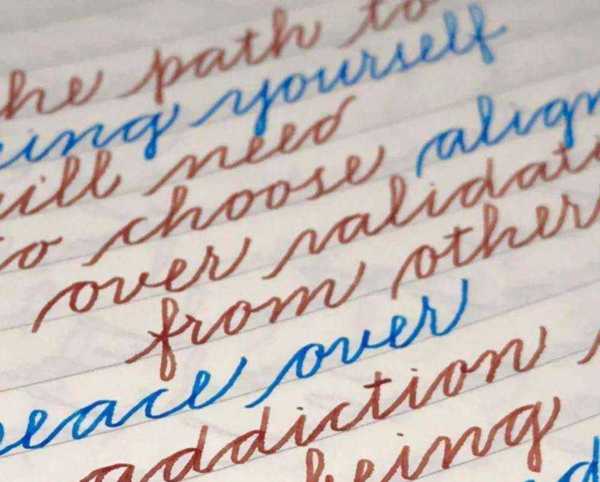 he path to
ing yourself
ill need
to choose align
over validat
from other
peace over
addiction
being